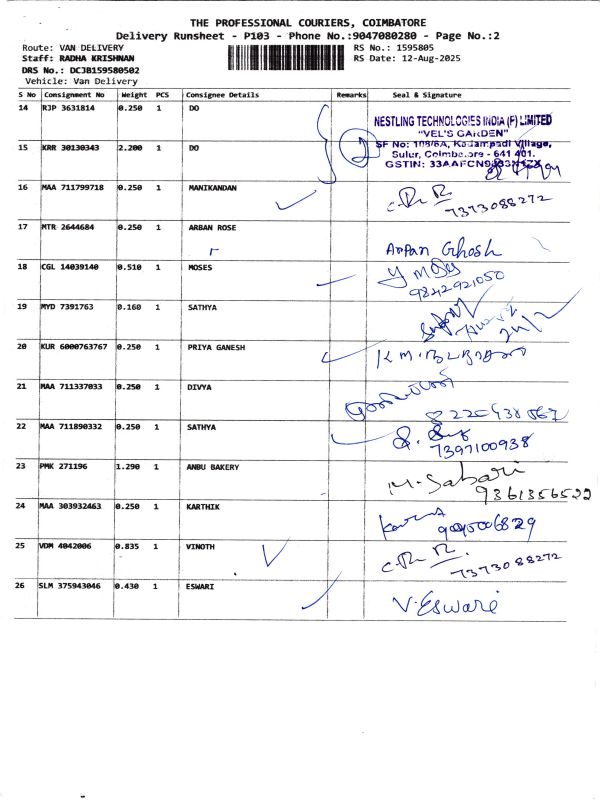 THE PROFESSIONAL COURIERS, COIMBATORE
Delivery Runsheet - P103 - Phone No.:9047080280 - Page No.:2
Route: VAN DELIVERY RS No.: 1595805
Staff: RADHA KRISHNAN RS Date: 12-Aug-2025
DRS No.: DCJB159580502
Vehicle: Van Delivery
S No Consignment No Weight PCS Consignee Details Remarks Seal & Signature
14 RJP 3631814 0.250 1 DO
NESTLING TECHNOLOGIES INDIA (P) LIMITED
"VEL'S GARDEN"
15 KRR 30130343 2.200 1 DO 2
SF No: 108/6A, Kadampadi Village,
Sulur, Coimbatore - 641 401.
16 MAA 711799718 0.250 1 MANIKANDAN
7373088272
17 MTR 2644684 0.250 1 ARBAN ROSE
Arpan Ghosh
18 CGL 14039140 0.510 1 MOSES
9842921050
19 MYD 7391763 0.160 1 SATHYA
20 KUR 6000763767 0.250 1 PRIYA GANESH
21 MAA 711337033 0.250 1 DIVYA
22 MAA 711890332 0.250 1 SATHYA
7397100938
23 PMK 271196 1.290 1 ANBU BAKERY
M. Sabari
9361356522
24 MAA 303932463 0.250 1 KARTHIK
25 VDM 4042006 0.835 1 VINOTH
7373088272
26 SLM 375943046 0.430 1 ESWARI
V. Eswari